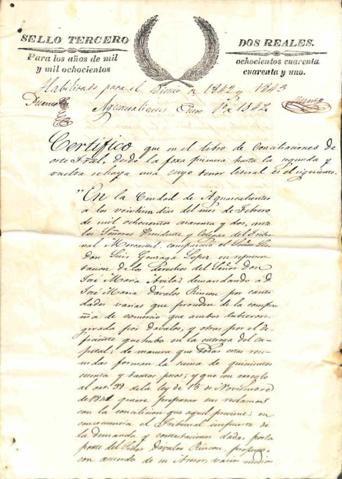 SELLO TERCERO
DOS REALES.
Para los años de mil
y mil ochocientos
ochocientos cuarenta
cuarenta y uno.
Habilitado para el de 1842 y 1843
Aguascalientes Enero 1º de 1842
Certifico que en el libro de Conciliaciones de
este desde la foxa primera hasta la segunda y
vuelta se haya una cuyo tenor literal es el siguiente.
En la Ciudad de Aguascalientes
a los veintiun dias del mes de Febrero
de mil ochocientos cuarenta y dos, ante
los Señores Presidente y Colegas del
nal Mercantil, compareció el Señor
Don Luis Gonzaga Lopez en represen
tacion de los derechos del Señor Don
José Maria demandando a D.
José Maria Davalos Rincon por canti
dades varias que proceden de la compa
ñia de comercio que ambos tubieron
girada por Davalos, y otras por el de
que hubo en la entrega del ca
pital; de manera que todas
forman la suma de quinientos
y tantos pesos; y que con arreglo
al art. 33 de la ley de 15 de Noviembre
de 1841 quiere preparar sus reclamos
con la conciliacion que aquel previene; en
consecuencia el Tribunal impuesto de
la demanda y contestaciones dadas por la
parte del Señor Davalos Rincon,
con acuerdo de su Asesor, varios medios